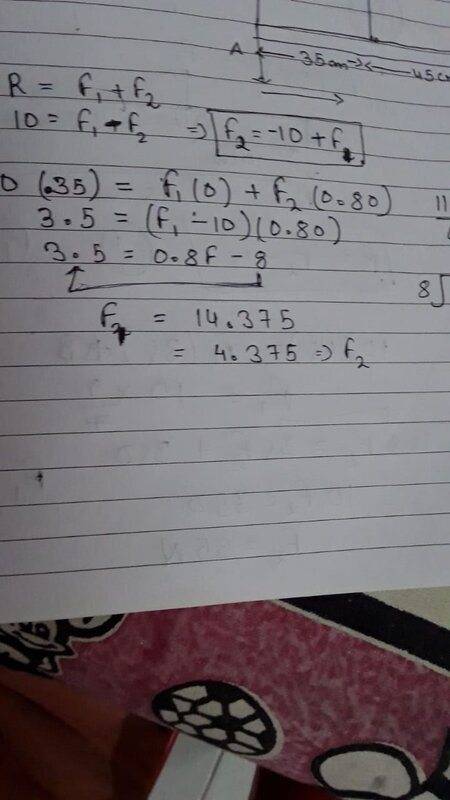 A 35cm 45c
R = f₁ + f₂
10 = f₁ - f₂ ⇒ f₂ = -10 + f₁
0 (.35) = f₁(0) + f₂(0.80) 11
3.5 = (f₁ - 10)(0.80)
3.5 = 0.8f - 8 8
f₁ = 14.375
= 4.375 ⇒ f₂